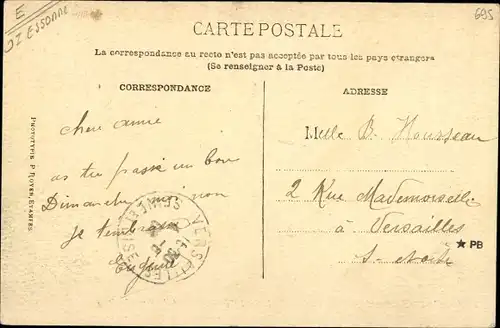 E
91 ESSONNE
695
CARTE POSTALE
La correspondance au recto n'est pas acceptée par tous les pays etrangers
(Se renseigner à la Poste)
CORRESPONDANCE
ADRESSE
PHOTOTYPIE P. ROYER, ETAMPES
chère amie
as tu passé un bon
Dimanche moi non
je t'embrasse
VERSAILLES
SEINE ET OISE
Melle B. Housseau
2 Rue Mademoiselle
à Versailles
S-et-oise
★ PB